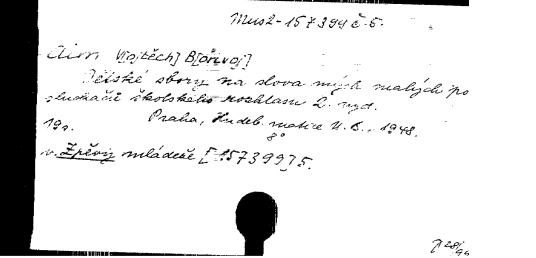 Mus2-157394 č. 5.
Aim V[ojtěch] B[ořivoj]
Dětské sbory na slova mých malých po
sluchačů školského rozhlasu 2. vyd.
Praha, Hudeb. matice U. B., 1948.
19 s. 8°
v. Zpěvy mládeže [157399] 5.